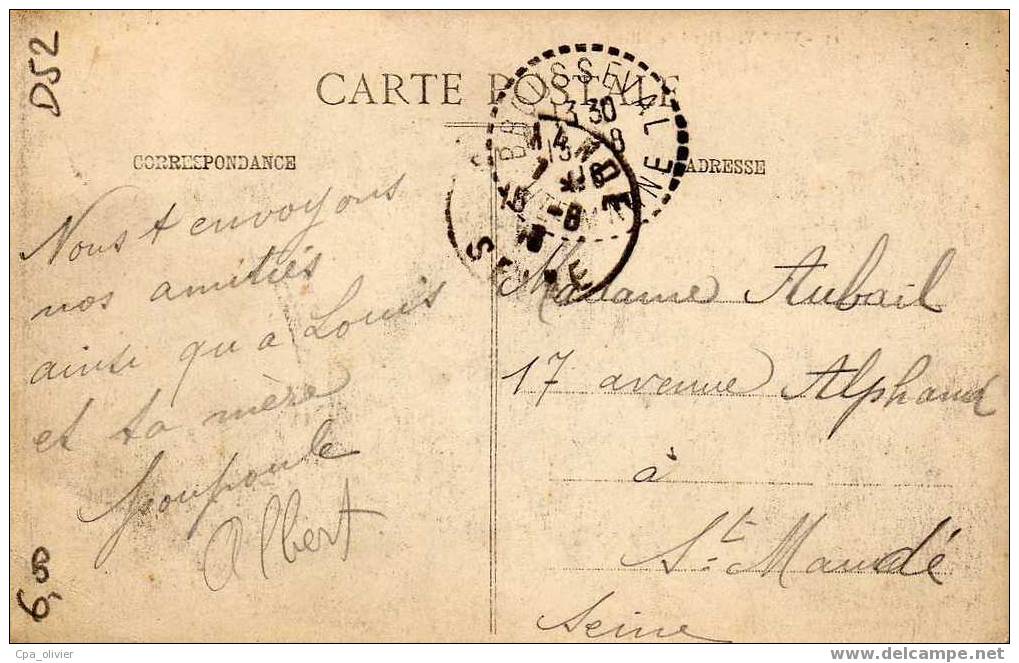 D52
CARTE POSTALE
BROUSSEVAL
13 30
MANDE
SEINE
CORRESPONDANCE
ADRESSE
Nous t envoyons
nos amitiés
ainsi qu a Louis
et ta mère
Albert
Madame Aubail
17 avenue Alphand
à
St. Mandé
Seine
6,8
Cpa_olivier
www.delcampe.net